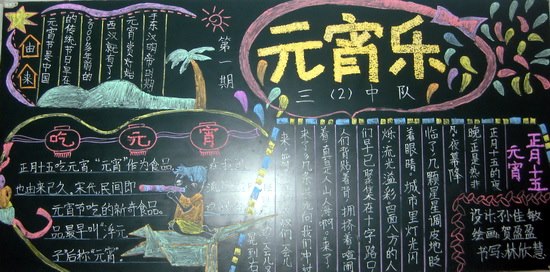 元宵乐
三(2)中队
第一期
由来
元宵节是中国
的传统节日早在
2000多年前的
西汉就有了
元宵赏灯始
于东汉明帝时期
吃元宵
正月十五吃元宵,"元宵"作为食品,
也由来已久,宋代,民间即
元宵节吃的新奇食品。
品最早叫"浮元
子"后称"元宵
正月十五
元宵
正月十五的夜
晚,正是热非
凡,夜幕降
临了,几颗星星调皮地眨
着眼睛,城市里灯光闪
烁,流光溢彩,四面八方的人
们早已聚集在十字路口
人们背贴着背,拥挤着,喧闹
着,真是人山人海啊。"来了
设计:孙佳敏
绘画:贺盈盈
书写:林欣慧